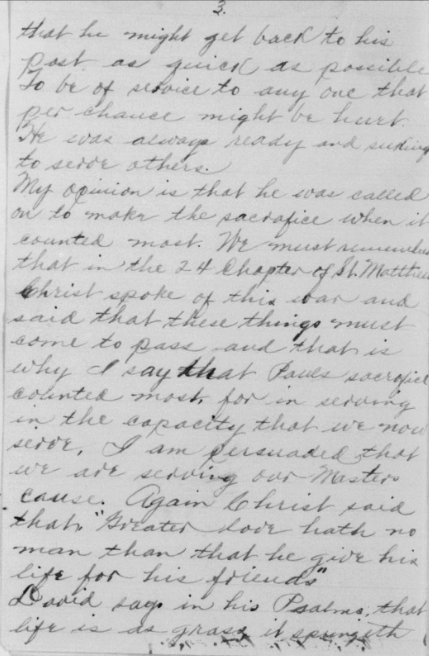 3.
that he might get back to his
post as quick as possible
To be of service to any one that
per chance might be hurt.
He was always ready and
to serve others.
My opinion is that he was called
on to make the sacrafice when it
counted most. We must remember
that in the 24 Chapter of St. Matthew
Christ spoke of this war and
said that these things must
come to pass and that is
why I say that Pauls sacrafice
counted most, for in serving
in the capacity that we now
serve, I am persuaded that
we are serving our Masters
cause. Again Christ said
that, "Greater love hath no
man than that he give his
life for his friends"
David says in his Psalms, that
life is as grass it springeth